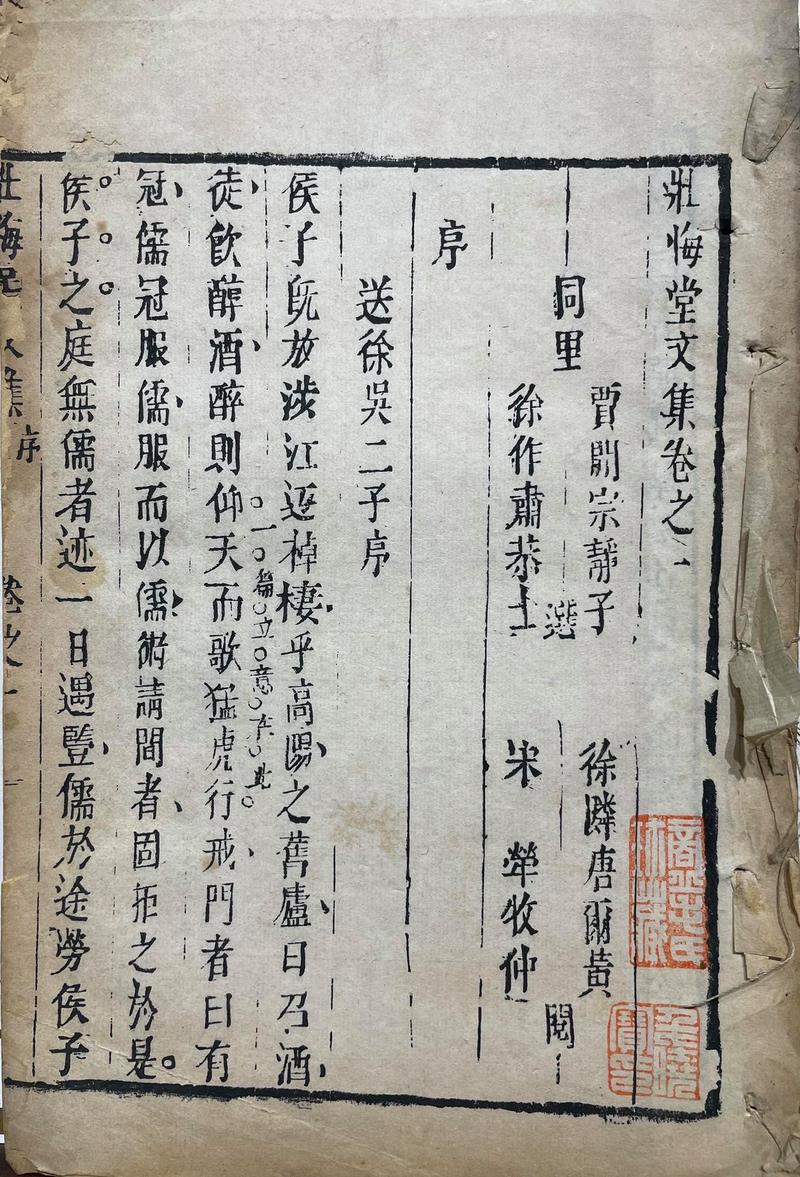 壯悔堂文集卷之一
同里
賈開宗靜子
徐作肅恭士
選
徐隣唐爾黃
宋犖牧仲
閱
序
送徐吳二子序
侯子既放涉江返棹棲乎高陽之舊廬日召酒
一篇立意在此
徒飲醇酒醉則仰天而歌猛虎行戒門者曰有
冠儒冠服儒服而以儒術請間者固拒之於是
侯子之庭無儒者迹一日遇豎儒於途勞侯子
壯悔堂文集
序
卷之一